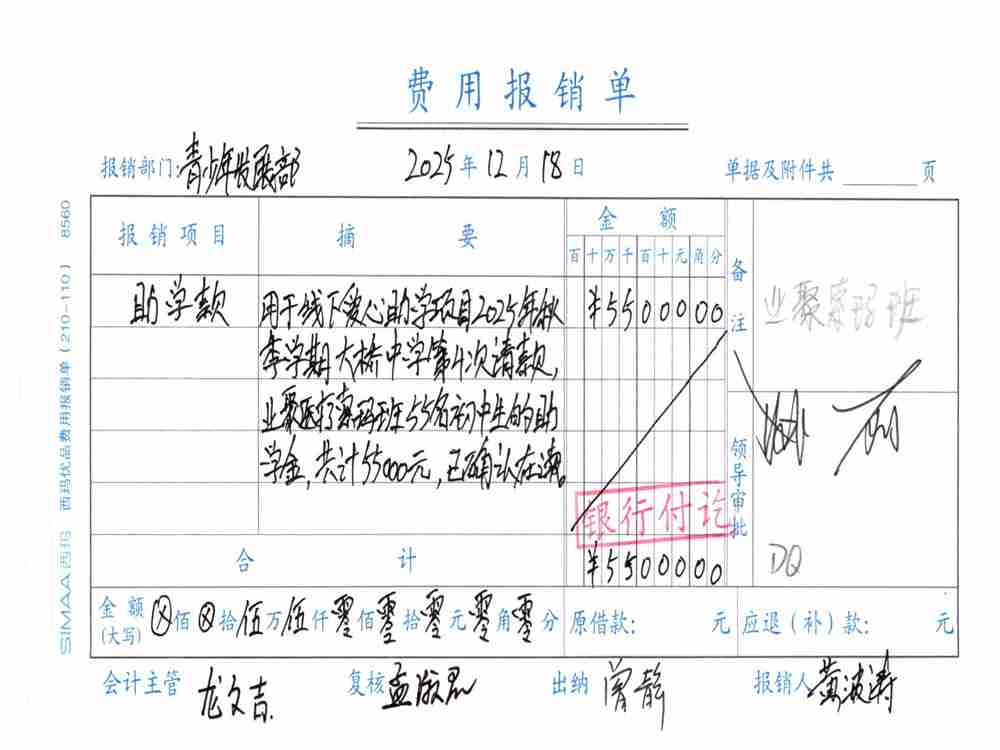 费用报销单
报销部门:青少年发展部 2025年12月18日 单据及附件共 页
SIMAA 西玛 西玛优品费用报销单(210-110) 8560
报销项目 摘要 金额 备注 业聚 班
百十万千百十元角分
助学款 用于线下爱心助学项目2025年秋 ¥5500000
季学期大桥中学第4次请款,
业聚医疗 班55名初中生的助
学金,共计55000元,已确认在读。
领导审批
银行付讫
DQ
合计 ¥5500000
金额(大写) ⊗佰⊗拾伍万伍仟零佰零拾零元零角零分 原借款: 元 应退(补)款: 元
会计主管 龙文吉 复核 孟 君 出纳 曾静 报销人 黄波涛